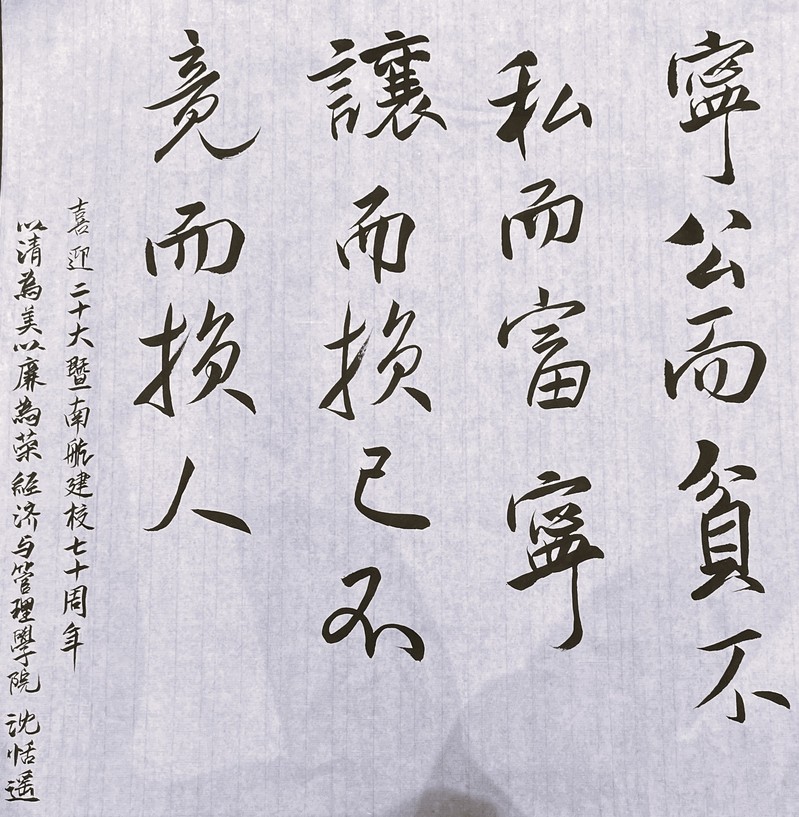 寧公而貧不
私而富寧
讓而损己不
竟而损人
喜迎二十大暨南航建校七十周年
以清為美以廉為荣经济与管理學院 沈恬遥